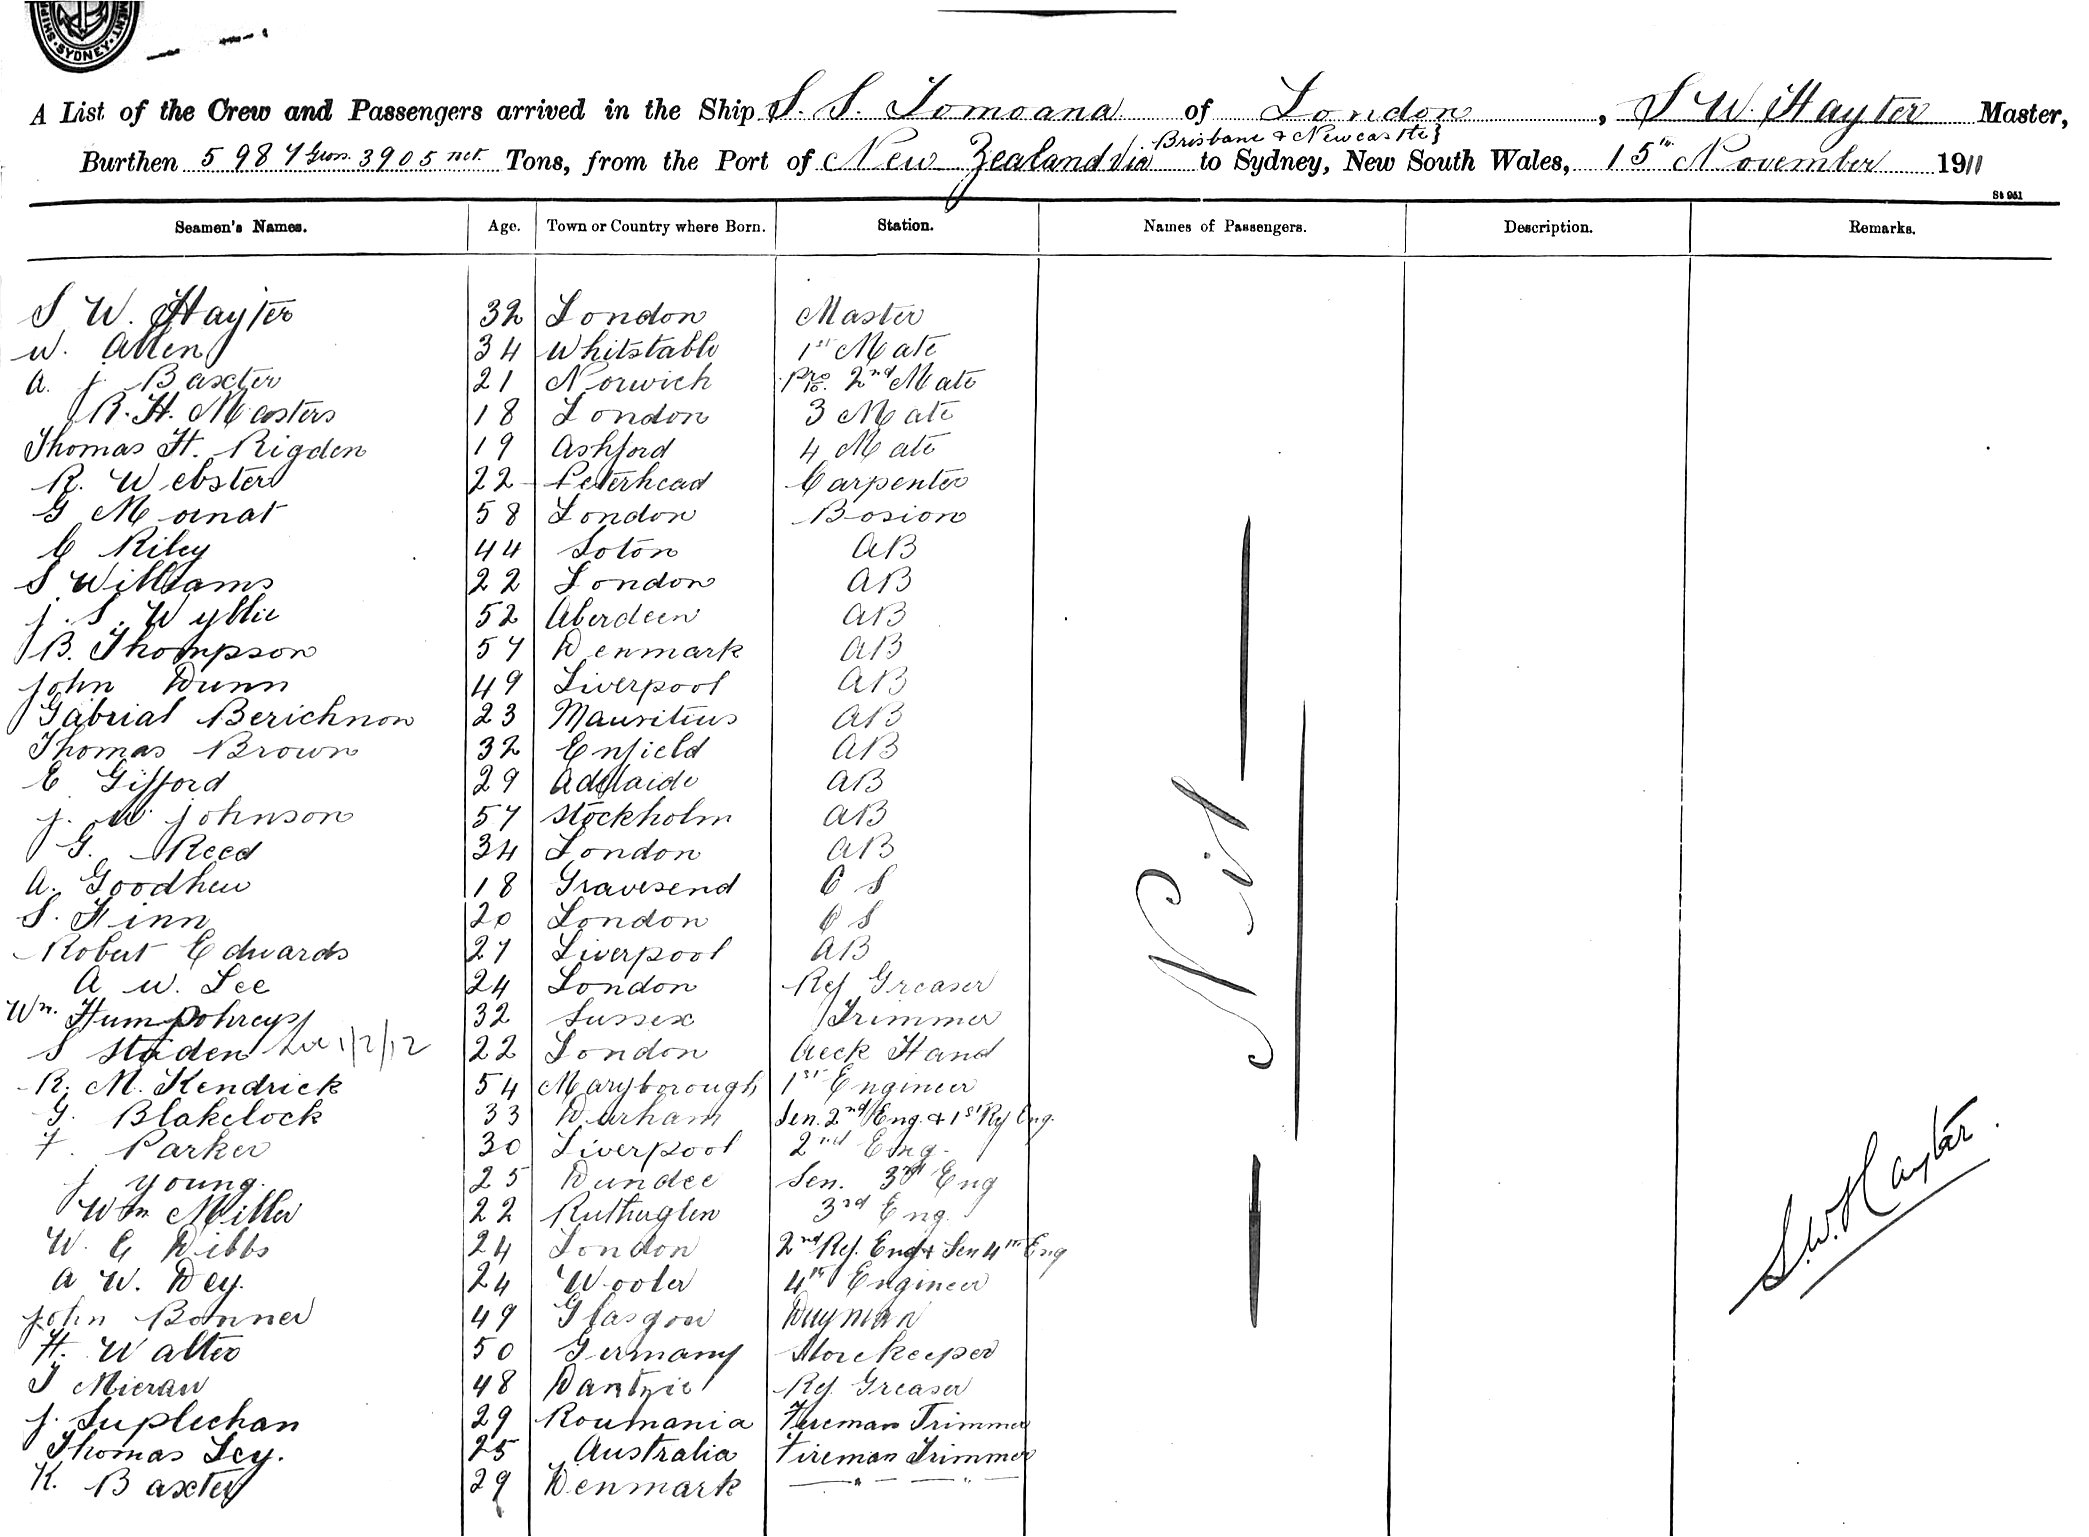 SYDNEY
A List of the Crew and Passengers arrived in the Ship S. S. Tomoana of London, S W. Hayter Master,
Brisbane & Newcastle}
Burthen 5987 Gross. 3905 net. Tons, from the Port of New Zealand Via to Sydney, New South Wales, 15th November 1911
St 951
Seamen's Names. Age. Town or Country where Born. Station. Names of Passengers. Description. Remarks.
S W. Hayter 32 London Master
W. Allen 34 Whitstable 1st Mate
A. J. Baxter 21 Norwich Pro. 2nd Mate
R. H. Masters 18 London 3 Mate
Thomas H. Rigden 19 Ashford 4 Mate
R. Webster 22 Peterhead Carpenter
G Mornat 58 London Bosion
C Riley 44 Soton AB
S Williams 22 London AB
J. S. Wyllie 52 Aberdeen AB
B. Thompson 57 Denmark AB
John Dunn 49 Liverpool AB
Gabrial Berichnon 23 Mauritius AB
Thomas Brown 32 Enfield AB
E Gifford 29 Adelaide AB
J. W Johnson 57 Stockholm AB
G. Reed 34 London AB
A. Goodhew 18 Gravesend O S
S. Finn 20 London O S
Robert Edwards 27 Liverpool AB
A W. Lee 24 London Ref Greaser
Wm. Humpohreys 32 Sussex Trimmer
S Staden 1/2/12 22 London Deck Hand
R. M. Kendrick 54 Maryborough 1st Engineer
G. Blakelock 33 Durham Sen. 2nd Eng. & 1st Ref Eng.
F. Parker 30 Liverpool 2nd Eng.
J Young. 25 Dundee Sen. 3rd Eng
Wm Miller 22 Rutherglen 3rd Eng.
W. G Dibbs 24 London 2nd Ref. Eng & Sen 4th Eng
A W. Dey. 24 Wooler 4th Engineer
John Bonner 49 Glasgow
H. Walter 50 Germany Storekeeper
J Mieran 48 Dantzic Ref. Greaser
J. Suplechan 29 Roumania Fireman Trimmer
Thomas Ley. 25 Australia Fireman Trimmer
K. Baxter 29 Denmark — " — " —
— Nil —
S.W. Hayter.